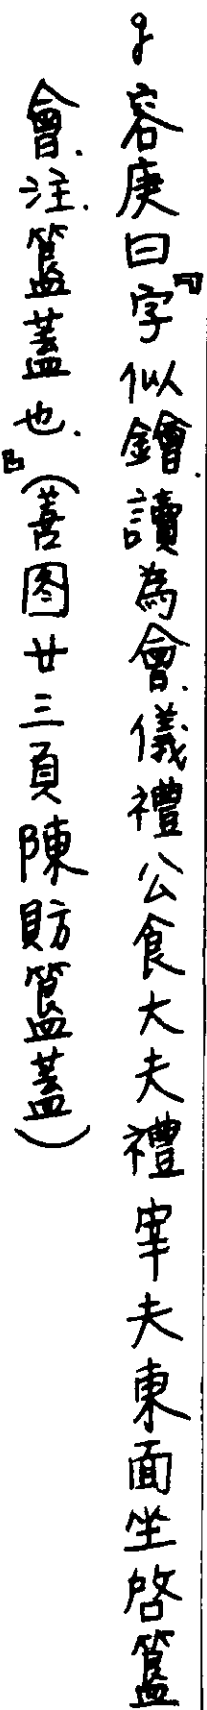 容庚曰『字似鐈.讀為會.儀禮公食大夫禮宰夫東面坐啓簋
會.注.簋蓋也.』(善圖廿三頁陳貯簋蓋)